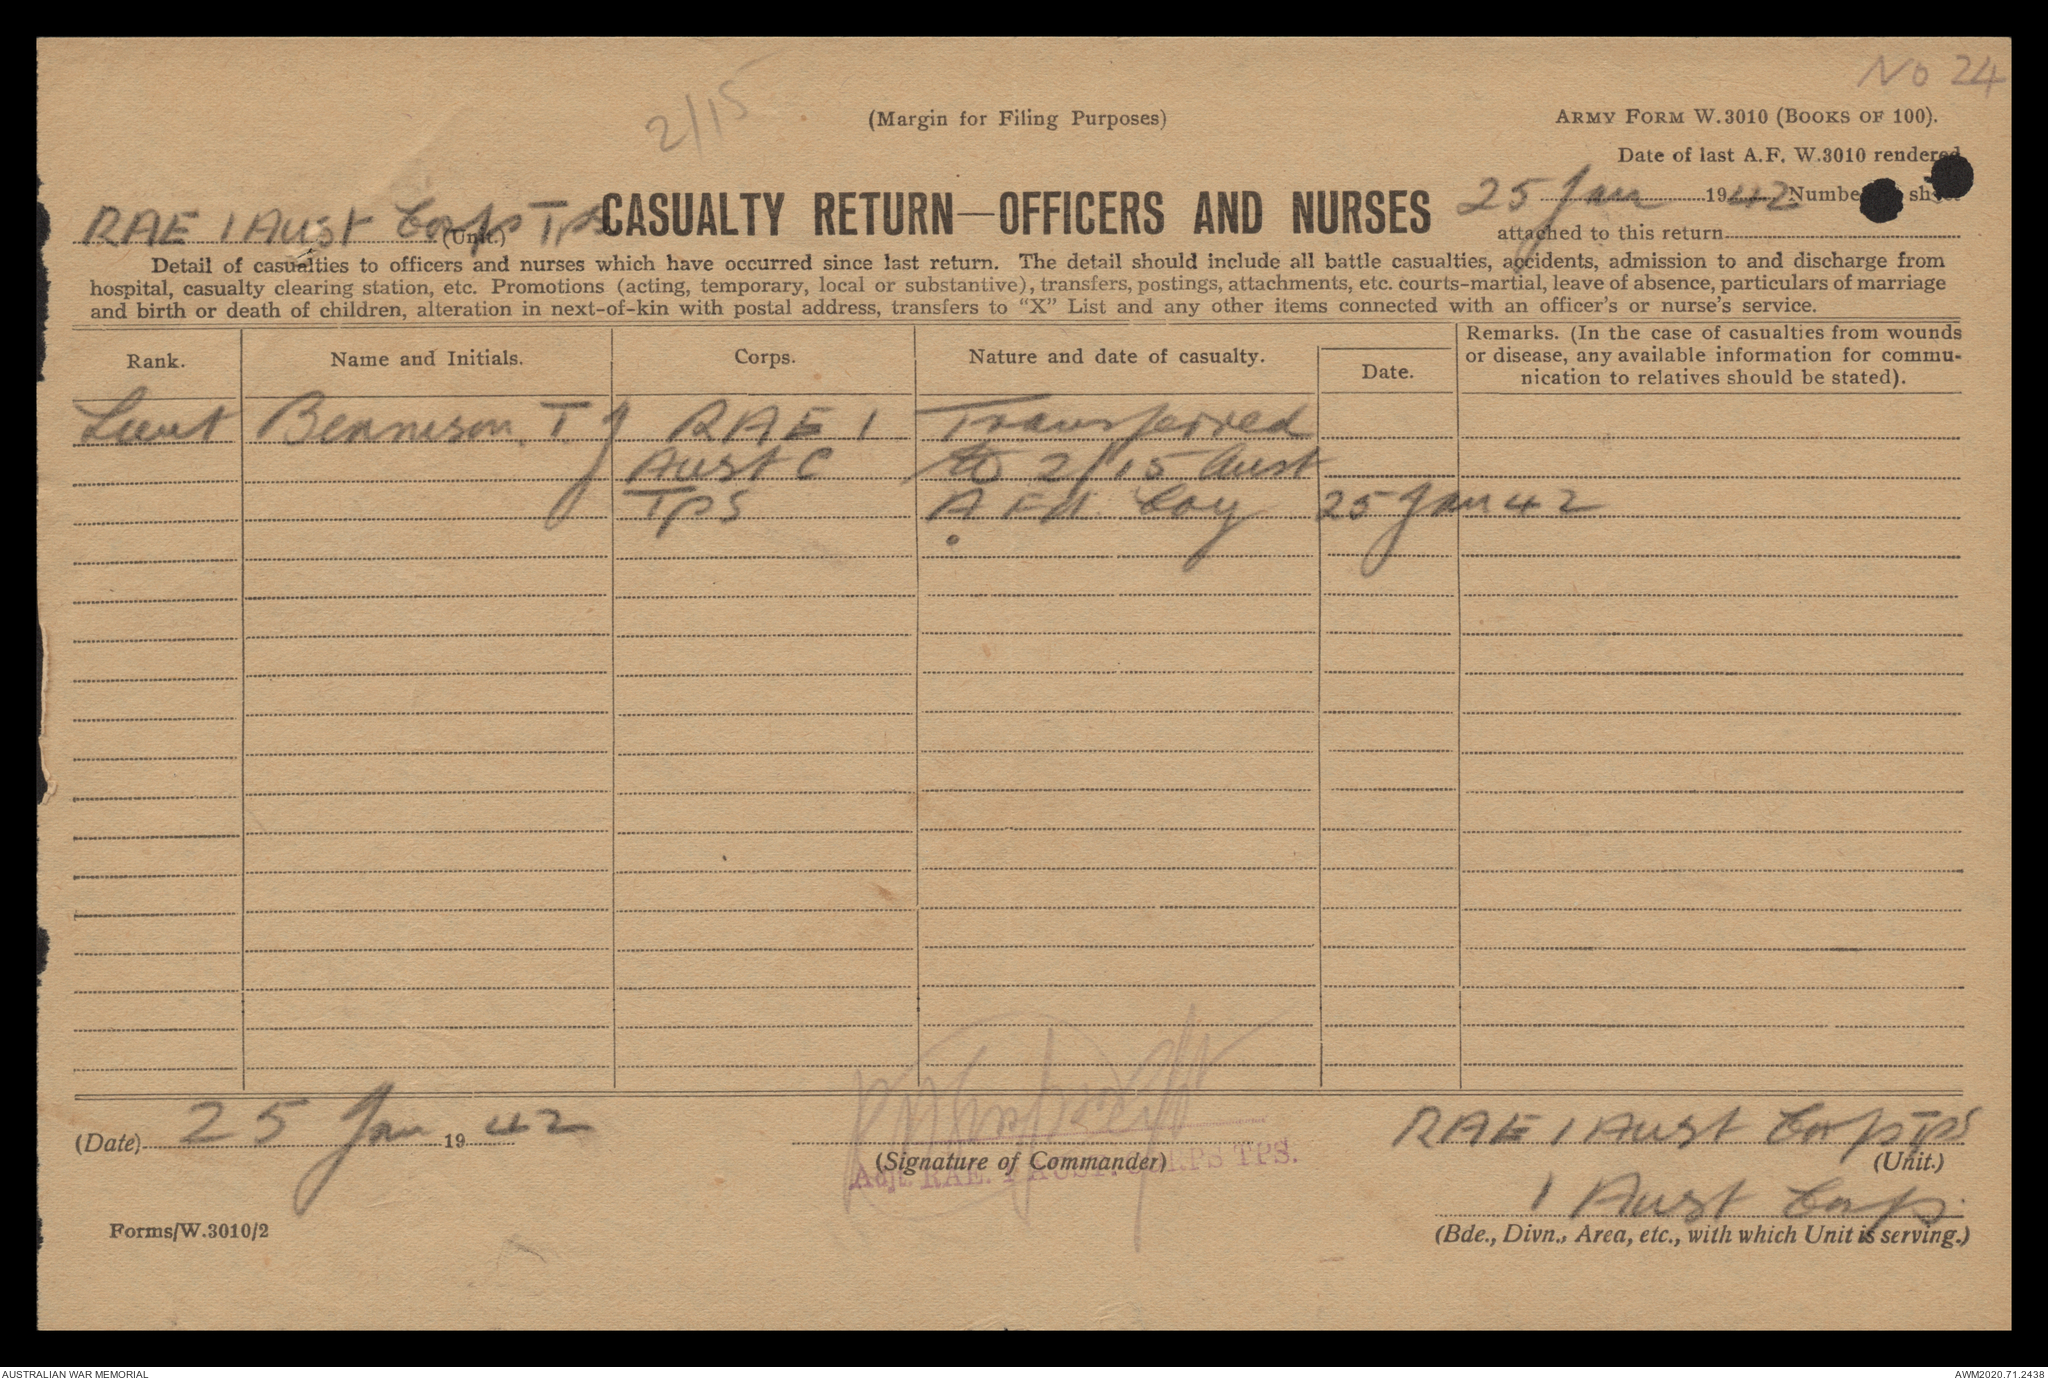 No 24
2/15
(Margin for Filing Purposes)
ARMY FORM W.3010 (BOOKS OF 100).
Date of last A.F. W.3010 rendered
25 Jan 1942 Number sheet
RAE 1 Aust Corps Tps
(Unit.)
CASUALTY RETURN—OFFICERS AND NURSES
attached to this return
Detail of casualties to officers and nurses which have occurred since last return. The detail should include all battle casualties, accidents, admission to and discharge from
hospital, casualty clearing station, etc. Promotions (acting, temporary, local or substantive), transfers, postings, attachments, etc. courts-martial, leave of absence, particulars of marriage
and birth or death of children, alteration in next-of-kin with postal address, transfers to "X" List and any other items connected with an officer's or nurse's service.
Rank. Name and Initials. Corps. Nature and date of casualty. Date. Remarks. (In the case of casualties from wounds
or disease, any available information for commu-
nication to relatives should be stated).
Lieut Bennison. T. J RAE 1 Transferred
Aust C to 2/15 Aust
Tps A Fd. Coy 25 Jan 42
(Date) 25 Jan 1942
(Signature of Commander)
Adjt RAE. 1 AUST. CORPS TPS.
RAE 1 Aust Corps Tps
(Unit.)
1 Aust Corps.
(Bde., Divn., Area, etc., with which Unit is serving.)
Forms/W.3010/2
AUSTRALIAN WAR MEMORIAL
AWM2020.71.2438